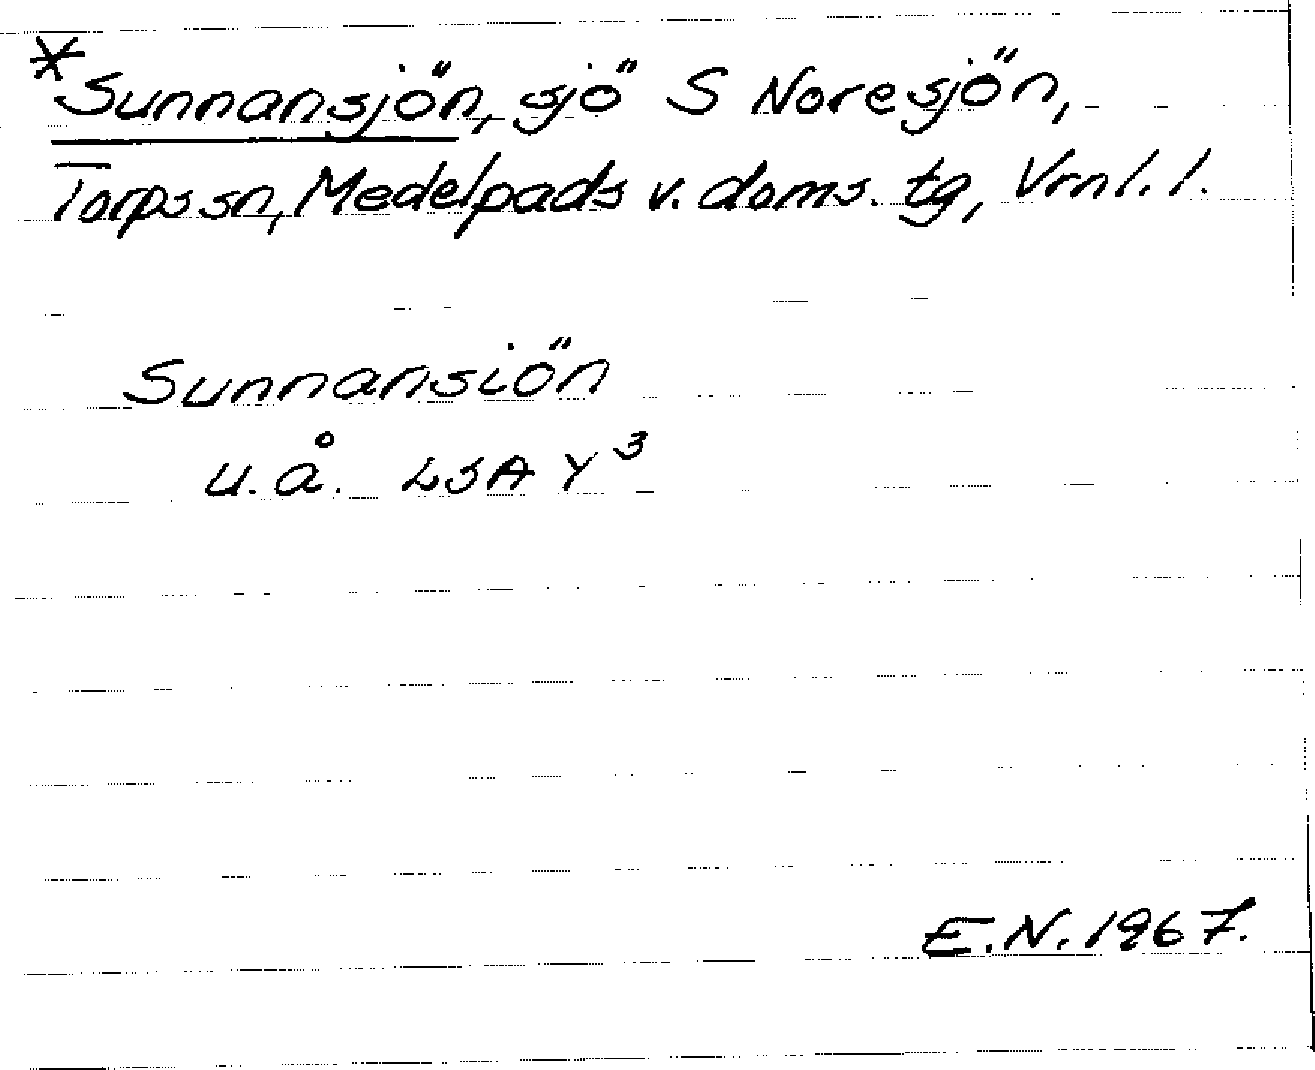 *Sunnansjön, sjö S Noresjön,
Torps sn, Medelpads v. doms. tg, Vrnl. l.
Sunnansiön
u.å. LSA Y3
E.N. 1967.